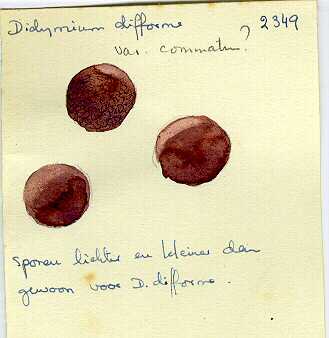 Didymium difforme 2349
var. comatum ?
Sporen lichter en kleiner dan
gewoon voor D. difforme.